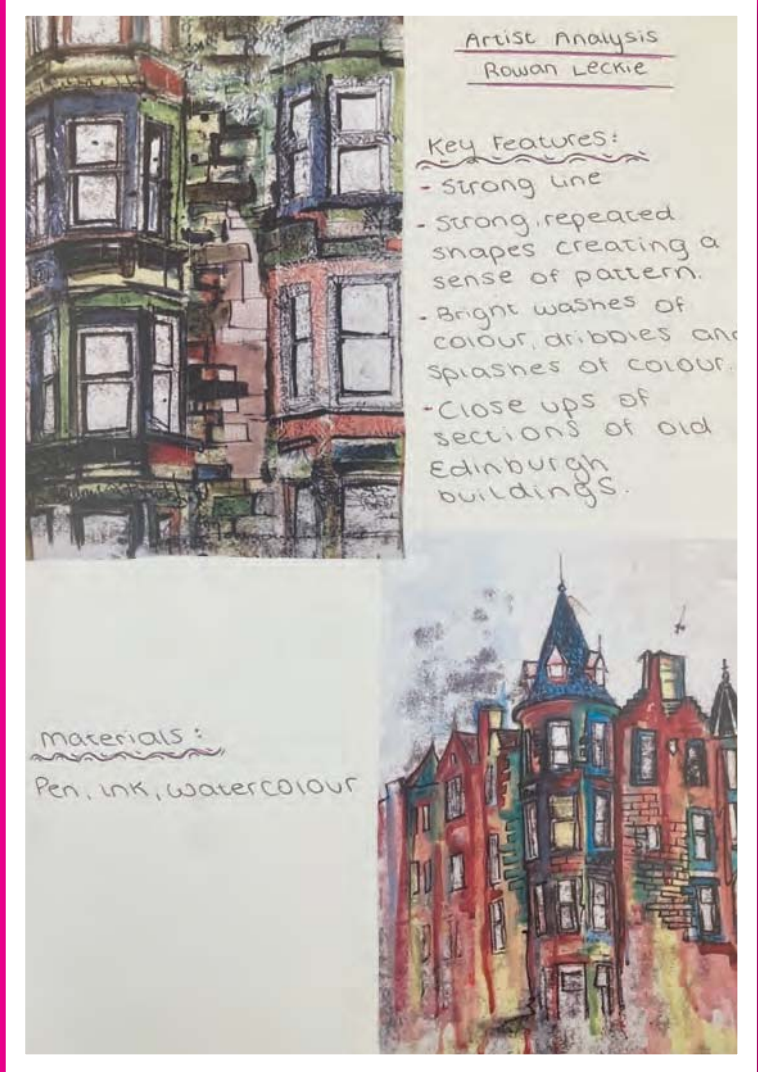 Artist Analysis
Rowan Leckie
Key Features:
- Strong line
- Strong, repeated
shapes creating a
sense of pattern.
- Bright washes of
colour, dribbles and
splashes of colour.
- Close ups of
sections of old
Edinburgh
buildings.
Materials:
Pen, ink, watercolour